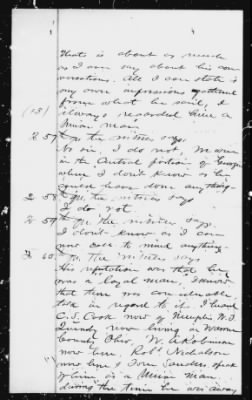 that is about as much
as I can say about his con
versations. All I can state is
my own impressions gathered
from what he said, I
(15) always regarded him a
Union man.
2 57 To 57 the witness says,
No sir, I do not. He was
in the Central portion of Georgia
where I don't know as he
could have done any thing
2 58 To the witness says
I do not
2 59 To the witness says
I don't know as I can
now call to mind anything
2 60. To The witness says
His reputation was that he
was a loyal man, I know
that there was considerable
talk in regard to it. I heard
C. S. Cook now of
now living in Warren
County Ohio, W. A Robinson
now here, Robt Nicholson
now here & Tom Sanders speak
of him as a Union man,
during the time he was away